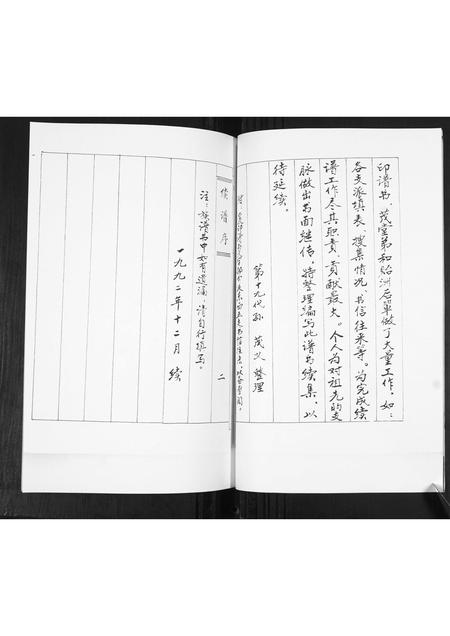 印谱书、茂堂弟和贻洲后辈做了大量工作，如：
各支派填表、搜集情况、书信往来等。为完成续
谱工作尽其职责、贡献最大。个人为对祖先的支
脉做出书面继传，特整理编写此谱书续集，以
待延续。
第十九代孙 茂义 整理
续谱序
二
注：族谱书中如有遗漏，请自行填写。
一九九二年十二月 续